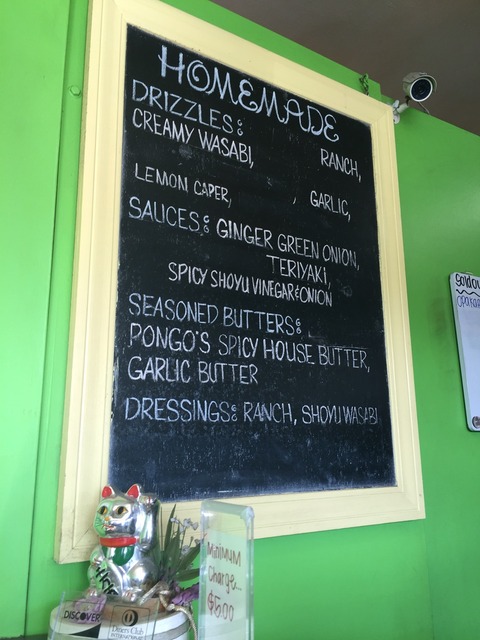 HOMEMADE
DRIZZLES:
CREAMY WASABI, RANCH,
LEMON CAPER, , GARLIC,
SAUCES: GINGER GREEN ONION,
TERIYAKI,
SPICY SHOYU VINEGAR & ONION
SEASONED BUTTERS:
PONGO'S SPICY HOUSE BUTTER,
GARLIC BUTTER
DRESSINGS: RANCH, SHOYU WASABI
MINIMUM
Charge...
$5.00
DISCOVER
Diners Club
INTERNATIONAL